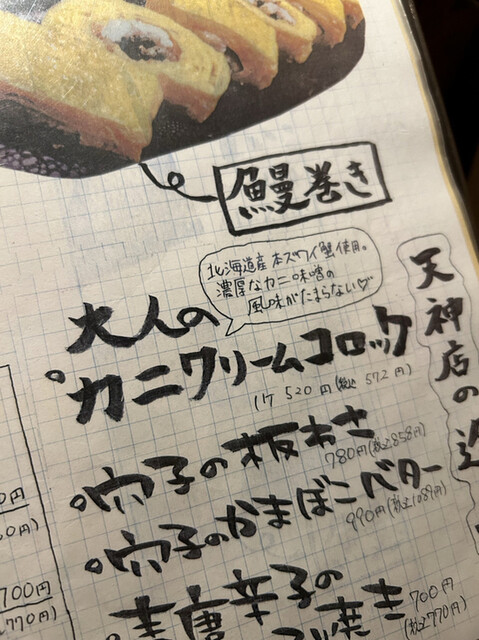 鰻巻き
北海道産本ズワイ蟹使用。
濃厚なカニ味噌の
風味がたまらない♡
大人の
カニクリームコロッケ
1ケ 520円(税込 572円)
穴子の板わさ
780円(税込858円)
穴子のかまぼこバター
990円(税込1089円)
青唐辛子の
焼き
700円
(税込770円)
天神店の
0円
0円)
700円
770円)